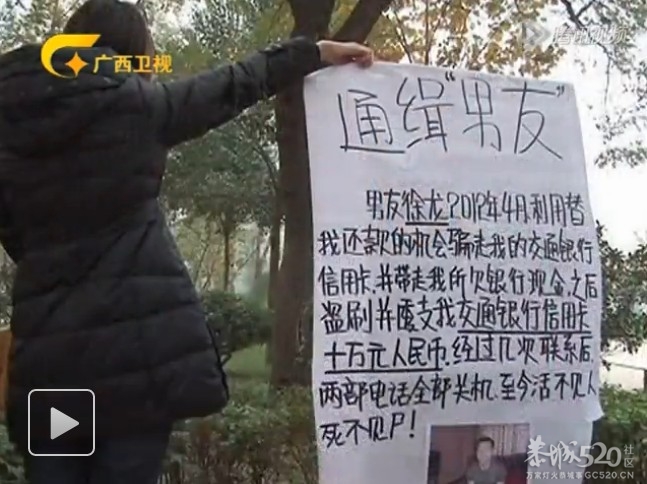 广西卫视
腾讯视频
通缉"男友"
男友徐龙2012年4月利用替
我还款的机会骗走我的交通银行
信用卡,并带走我所欠银行现金,之后
盗刷并透支我交通银行信用卡
十万元人民币,经过几次联系后,
两部电话全部关机,至今活不见人
死不见尸!
恭城520社区
万家灯火恭城事 GC520.CN